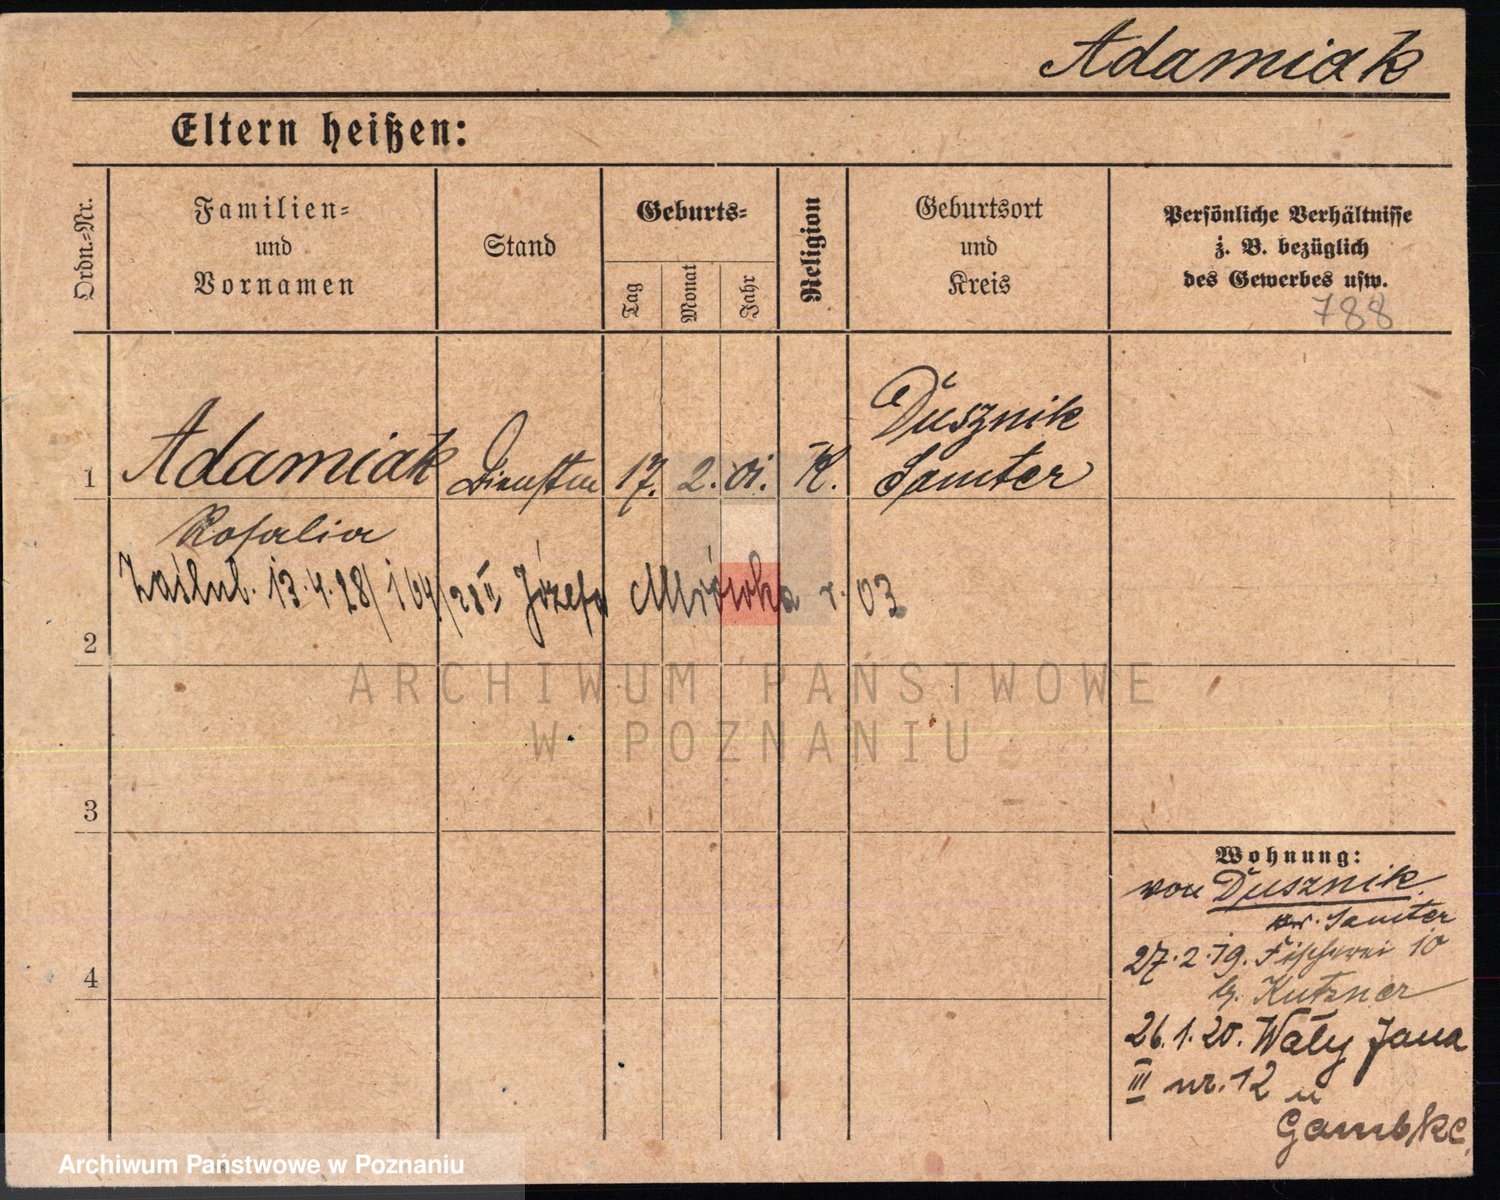 Adamiak
Eltern heißen:
Ordn.=Nr.
Familien=
und
Vornamen
Stand
Geburts=
Tag
Monat
Jahr
Religion
Geburtsort
und
Kreis
Persönliche Verhältnisse
z. B. bezüglich
des Gewerbes usw.
788
1
Adamiak
17. 2. 01. K.
Dusznik
Samter
Rosalia
Zaślub. 13.4.28/164/28 II Józefa Mrówka r. 03
2
ARCHIWUM PAŃSTWOWE
W POZNANIU
3
4
Wohnung:
von Dusznik
Kr. Samter
27.2.19. Fischerei 10
b. Kutzner
26.1.20. Wały Jana
III nr. 12 u
Archiwum Państwowe w Poznaniu